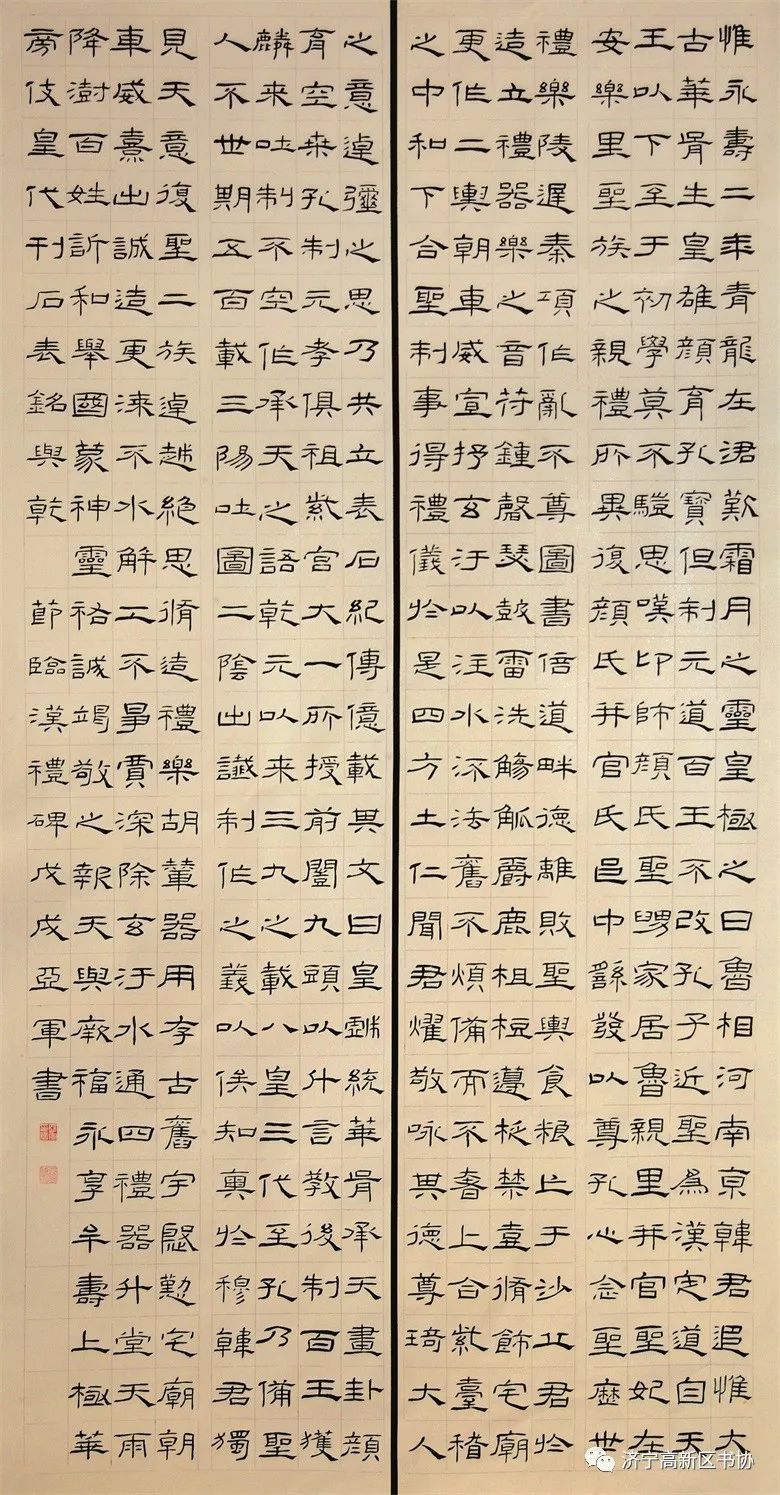 惟永壽二年青龍在涒歎霜月之靈皇極之日魯相河南京韓君追惟大
古華胥生皇雄顏育孔寶俱制元道百王不改孔子近聖為漢定道自天
王以下至于初學莫不驥思嘆卬師顏氏聖舅家居魯親里并官聖妃在
安樂里聖族之親禮所異復顏氏并官氏邑中繇發以尊孔心念聖歷世
禮樂陵遲秦項作亂不尊圖書倍道畔德離敗聖輿食糧亡于沙丘君於
造立禮器樂之音符鍾磬瑟鼓雷洗觴觚爵鹿柤梪籩柉禁壺脩飾宅廟
更作二輿朝車威宣抒玄汙以注水流法舊不煩備而不奢上合紫臺稽
之中和下合聖制事得禮儀於是四方土仁聞君燿敬咏其德尊琦大人
之意逴彌之思乃共立表石紀傳億載其文曰皇戲統華胥承天畫卦顏
育空桑孔制元孝俱祖紫宮大一所授前闓九頭以什言教後制百王獲
麟來吐制不空作承天之語乾元以來三九之載八皇三代至孔乃備聖
人不世期五百載三陽吐圖二陰出讖制作之義以俟知奧於穆韓君獨
見天意復聖二族逴越絕思脩造禮樂胡輦器用存古舊宇殷勤宅廟朝
車威熹出誠造更漆不水解工不爭賈深除玄汙水通四禮器升堂天雨
降澍百姓訢和舉國蒙神靈祐誠竭敬之報天與厥福永享牟壽上極華
旁伎皇代刊石表銘與乾 節臨漢禮碑戊戌亞軍書
济宁高新区书协